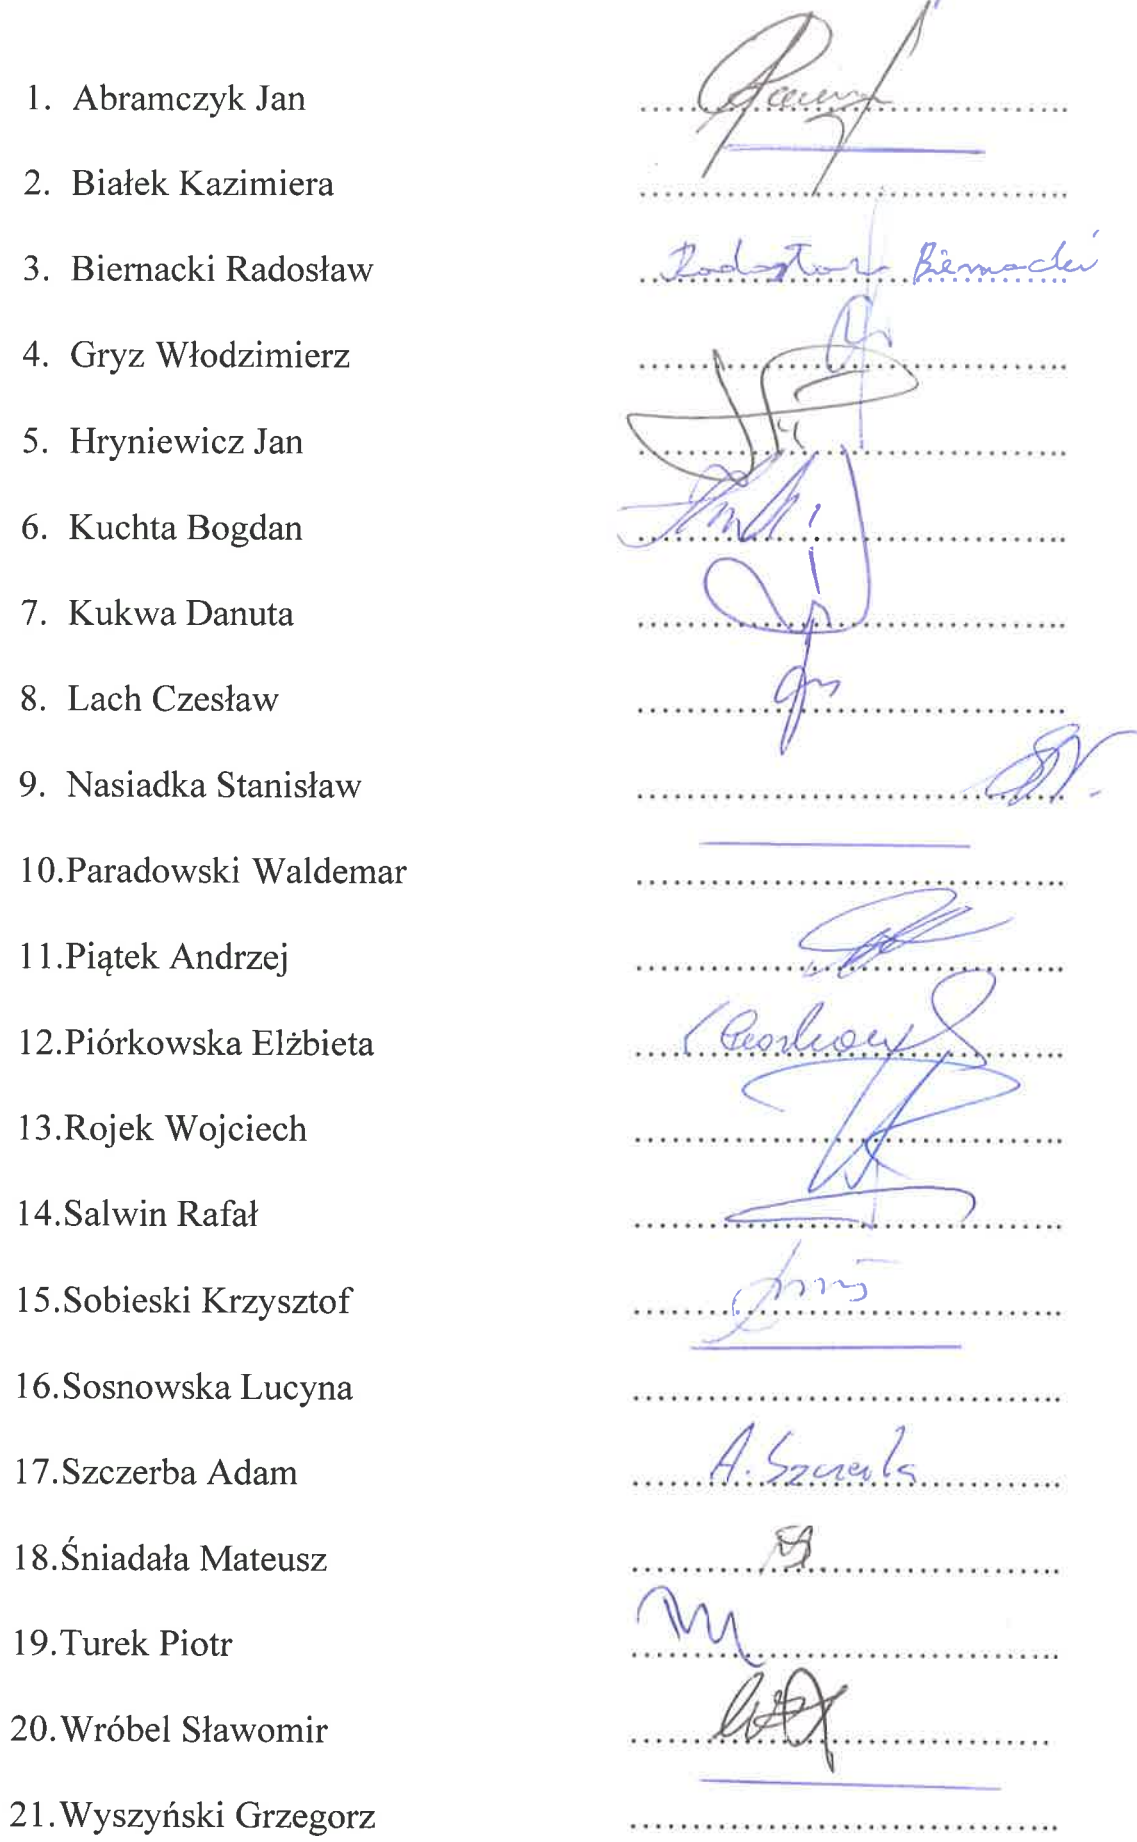 1. Abramczyk Jan
2. Białek Kazimiera
3. Biernacki Radosław Radosław Biernacki
4. Gryz Włodzimierz
5. Hryniewicz Jan
6. Kuchta Bogdan
7. Kukwa Danuta
8. Lach Czesław
9. Nasiadka Stanisław
10.Paradowski Waldemar
11.Piątek Andrzej
12.Piórkowska Elżbieta
13.Rojek Wojciech
14.Salwin Rafał
15.Sobieski Krzysztof
16.Sosnowska Lucyna
17.Szczerba Adam A. Szczerba
18.Śniadała Mateusz
19.Turek Piotr
20.Wróbel Sławomir
21.Wyszyński Grzegorz